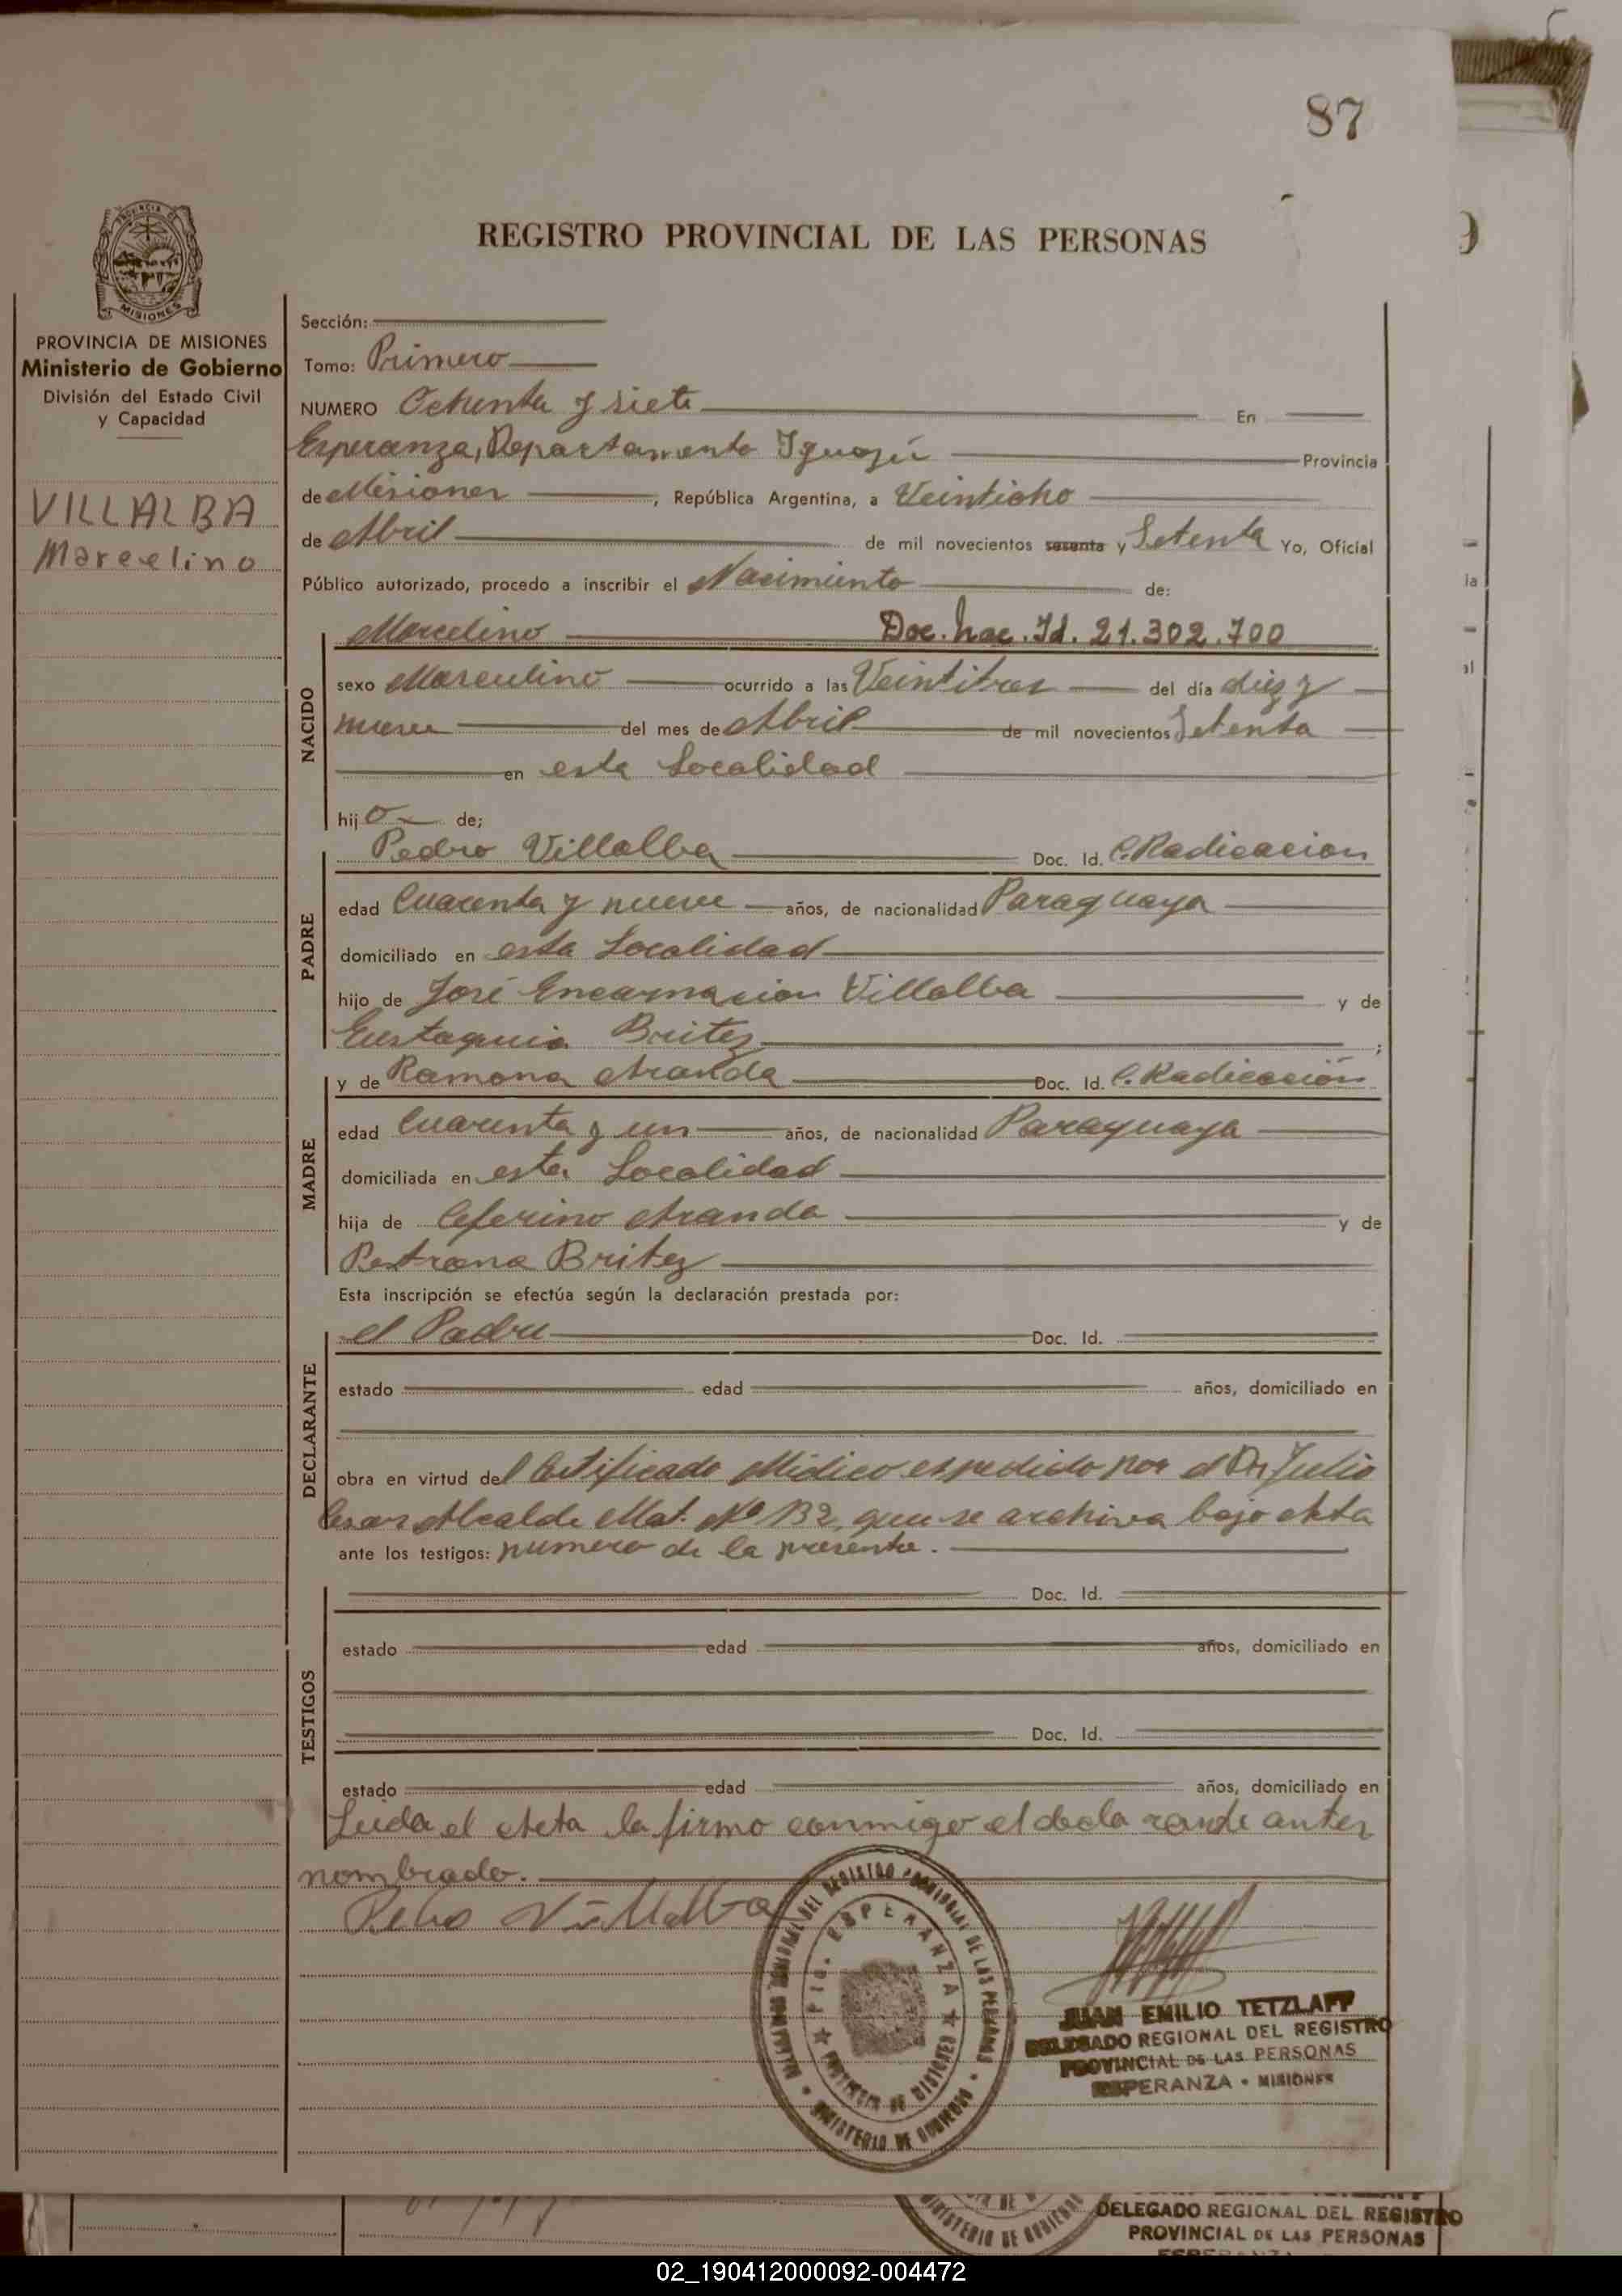 87
REGISTRO PROVINCIAL DE LAS PERSONAS
PROVINCIA DE MISIONES
Ministerio de Gobierno
División del Estado Civil
y Capacidad
VILLALBA
Marcelino
Sección:
Tomo: Primero
NUMERO Ochenta y siete En
Esperanza, Departamento Iguazú Provincia
de Misiones, República Argentina, a Veintiocho
de Abril de mil novecientos sesenta y Setenta Yo, Oficial
Público autorizado, procedo a inscribir el Nacimiento de:
Marcelino Doc. Nac. Id. 21.302.700
NACIDO
sexo Masculino ocurrido a las Veintitres del día diez y
nueve del mes de Abril de mil novecientos Setenta
en esta Localidad
hijo de;
PADRE
Pedro Villalba Doc. Id. C. Radicacion
edad Cuarenta y nueve años, de nacionalidad Paraguaya
domiciliado en esta Localidad
hijo de José Encarnacion Villalba y de
Eustaquia Britez;
MADRE
y de Ramona Aranda Doc. Id. C. Radicación
edad Cuarenta y un años, de nacionalidad Paraguaya
domiciliada en esta Localidad
hija de Ceferino Aranda y de
Petrona Britez
Esta inscripción se efectúa según la declaración prestada por:
DECLARANTE
el Padre Doc. Id.
estado edad años, domiciliado en
obra en virtud del Certificado Médico espedido por el Dr Julio
Cesar Alcalde Mat. Nº 132, que se archiva bajo Acta
ante los testigos: numero de la presente.
TESTIGOS
Doc. Id.
estado edad años, domiciliado en
Doc. Id.
estado edad años, domiciliado en
Leida el Acta la firmo conmigo el declarante antes
nombrado.
Pedro Villalba
ESPERANZA
JUAN EMILIO TETZLAFF
DELEGADO REGIONAL DEL REGISTRO
PROVINCIAL DE LAS PERSONAS
ESPERANZA - MISIONES
DELEGADO REGIONAL DEL REGISTRO
PROVINCIAL DE LAS PERSONAS
02_190412000092-004472